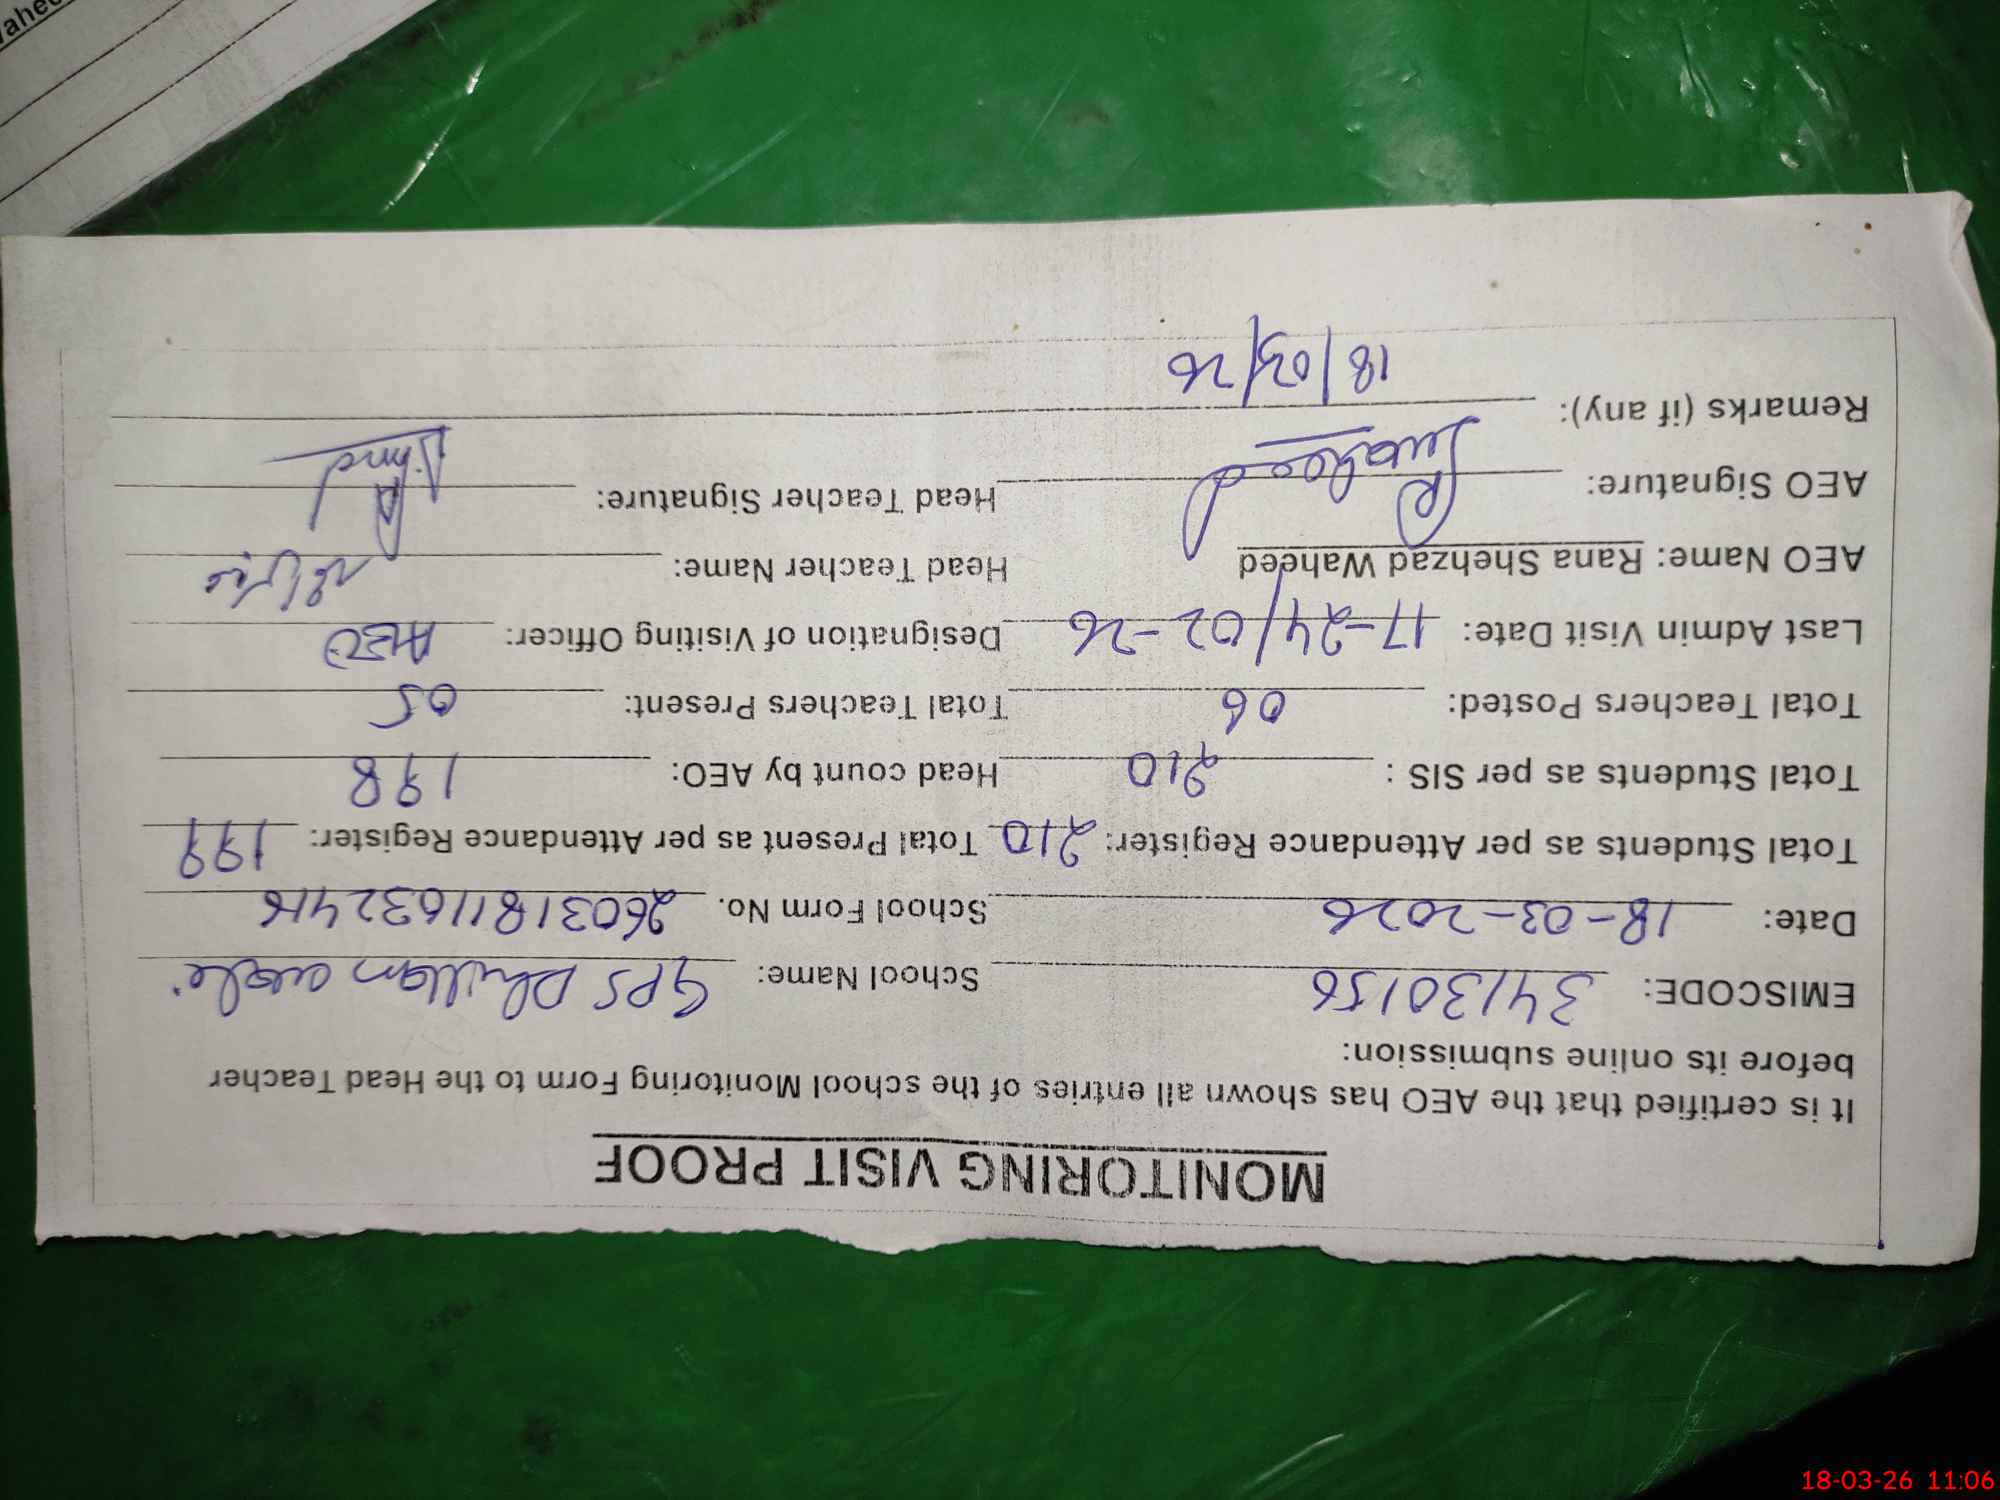 MONITORING VISIT PROOF
It is certified that the AEO has shown all entries of the school Monitoring Form to the Head Teacher
before its online submission:
EMISCODE: 34130156 School Name: GPS
Date: 18-03-2026 School Form No.
Total Students as per Attendance Register: 210 Total Present as per Attendance Register: 199
Total Students as per SIS : 210 Head count by AEO: 198
Total Teachers Posted: 06 Total Teachers Present: 05
Last Admin Visit Date: 17-24/02-26 Designation of Visiting Officer: AEO
AEO Name: Rana Shehzad Waheed Head Teacher Name:
AEO Signature: Head Teacher Signature:
Remarks (if any):
18/03/26
18-03-26 11:06